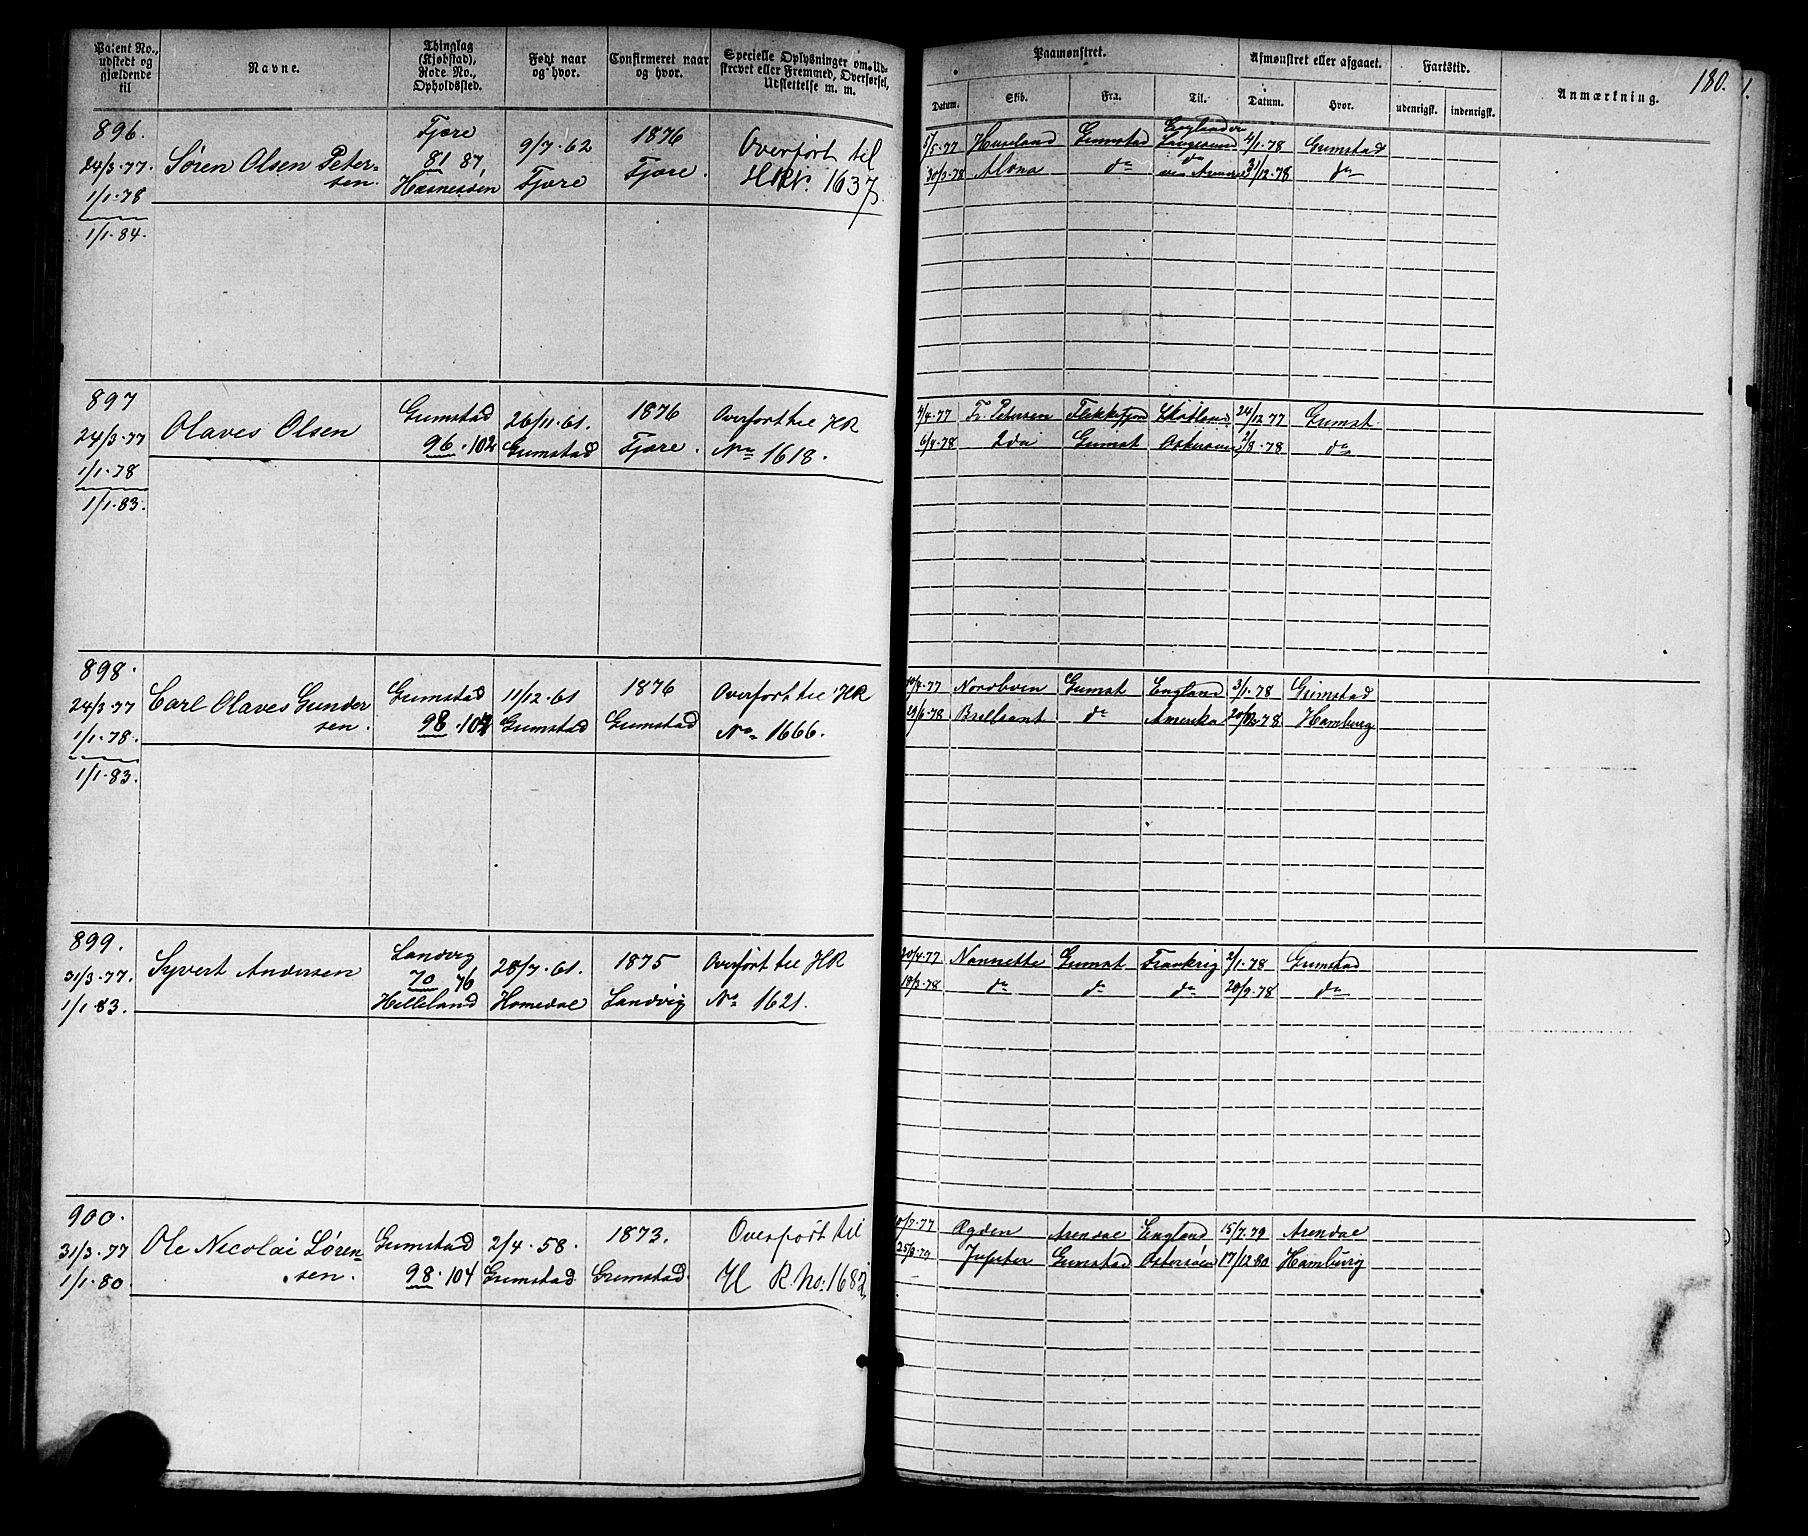 Patent No., udstedt og gjældende til
Navne.
Thinglag (Kjøbstad), Rode No., Opholdssted.
Født naar og hvor.
Confirmeret naar og hvor.
Specielle Oplysninger om Udskrevet eller Fremmed, Overførsel, Udslettelse m. m.
Paamønstret.
Afmønstret eller afgaaet.
Fartstid.
Anmærkning.
180.
1.
Datum.
Skib.
Fra.
Til.
Datum.
Hvor.
udenrigsk.
indenrigsk.
896.
24/3-77
1/1-78
1/1-84.
Søren Olsen Peter-
sen.
Fjære
81 87
Hasnessen
9/7-62
Fjære
1876
Fjære.
Overført til
HRN. 1637.
Grimstad
4/1-78
Grimstad
30/3-78 Alona do 31/12-78 do
897
24/3-77
1/1-78
1/1-83.
Olaves Olsen
Grimstad
96.102
26/11-61.
Grimstad
1876
Fjære.
Overført til HR
No 1618.
Fr. Petersen Flekkefjord Skotland 24/12-77 Grimst
6/4-78 Ida Grimst 2/8-78 do
898.
24/3-77
1/1-78.
1/1-83.
Carl Olaves Gunder
sen.
Grimstad
98.104
11/12-61
Grimstad
1876
Grimstad
Overført til HR
No 1666.
Nordboen Grimst England 3/1-78 Grimstad
29/6-78 Brillant do Amerika Hamburg
899.
31/3-77.
1/1-83.
Syvert Andersen
Landvig
70 76
Helleland
28/7-61.
Homedal
1875
Landvig
Overført til HR
No 1621.
20/4-77 Nannette Grimst Frankrig 2/1-78 Grimstad
19/3-78 do do do 20/9-78 do
900.
31/3-77
1/1-80
Ole Nicolai Søren-
sen.
Grimstad
98.104
2/4-58.
Grimstad
1873.
Grimstad.
Overført til
H R. No. 1682.
Agden Arendal England 15/7-79 Arendal
Jupiter Grimstad Østersøen 17/12-80 Hamburg